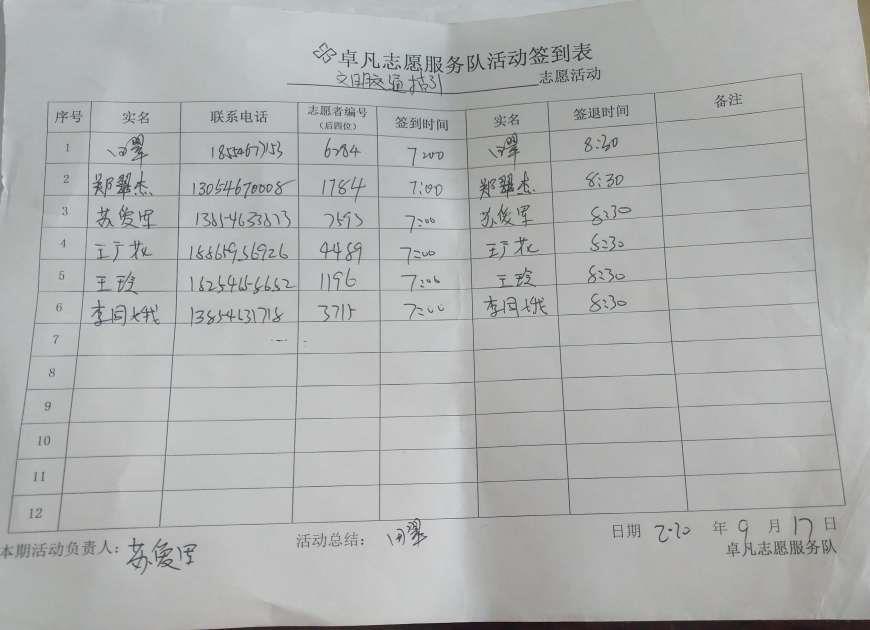 卓凡志愿服务队活动签到表
文明交通指引 志愿活动
序号 实名 联系电话 志愿者编号(后四位) 签到时间 实名 签退时间 备注
1 6784 7:00 8:30
2 郑翠杰 13054670008 1784 7:00 郑翠杰 8:30
3 苏俊里 7:00 苏俊里 8:30
4 王广花 18865956926 4489 7:00 王广花 8:30
5 王玲 1196 7:00 王玲 8:30
6 李同 13854631718 3715 7:00 李同 8:30
7
8
9
10
11
12
本期活动负责人：苏俊里 活动总结： 日期 2020 年 9 月 17 日
卓凡志愿服务队